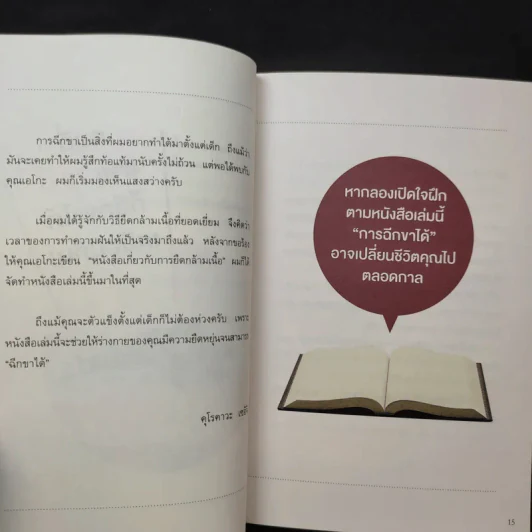 การฉีกขาเป็นสิ่งที่ผมอยากทำได้มาตั้งแต่เด็ก ถึงแม้ว่า
มันจะเคยทำให้ผมรู้สึกท้อแท้มานับครั้งไม่ถ้วน แต่พอได้พบกับ
คุณเอโกะ ผมก็เริ่มมองเห็นแสงสว่างครับ
เมื่อผมได้รู้จักกับวิธียืดกล้ามเนื้อที่ยอดเยี่ยม จึงคิดว่า
เวลาของการทำความฝันให้เป็นจริงมาถึงแล้ว หลังจากขอร้อง
ให้คุณเอโกะเขียน "หนังสือเกี่ยวกับการยืดกล้ามเนื้อ" ผมก็ได้
จัดทำหนังสือเล่มนี้ขึ้นมาในที่สุด
ถึงแม้คุณจะตัวแข็งตั้งแต่เด็กก็ไม่ต้องห่วงครับ เพราะ
หนังสือเล่มนี้จะช่วยให้ร่างกายของคุณมีความยืดหยุ่นจนสามารถ
"ฉีกขาได้"
คุโรคาวะ
หากลองเปิดใจฝึก
ตามหนังสือเล่มนี้
"การฉีกขาได้"
อาจเปลี่ยนชีวิตคุณไป
ตลอดกาล
15